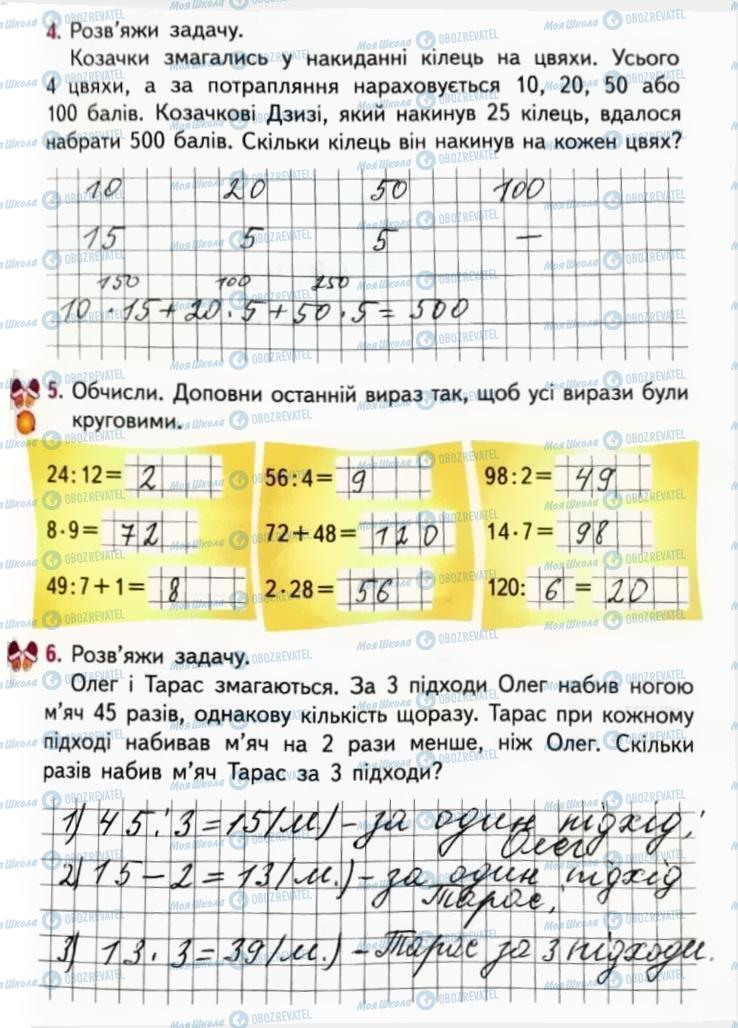 4. Розв'яжи задачу.
Козачки змагались у накиданні кілець на цвяхи. Усього
4 цвяхи, а за потрапляння нараховується 10, 20, 50 або
100 балів. Козачкові Дзизі, який накинув 25 кілець, вдалося
набрати 500 балів. Скільки кілець він накинув на кожен цвях?
10 20 50 100
15 5 5 —
150 100 250
10 · 15 + 20 · 5 + 50 · 5 = 500
5. Обчисли. Доповни останній вираз так, щоб усі вирази були
круговими.
24 : 12 = 2 56 : 4 = 9 98 : 2 = 49
8 · 9 = 72 72 + 48 = 120 14 · 7 = 98
49 : 7 + 1 = 8 2 · 28 = 56 120 : 6 = 20
6. Розв'яжи задачу.
Олег і Тарас змагаються. За 3 підходи Олег набив ногою
м'яч 45 разів, однакову кількість щоразу. Тарас при кожному
підході набивав м'яч на 2 рази менше, ніж Олег. Скільки
разів набив м'яч Тарас за 3 підходи?
1) 45 : 3 = 15 (м) – за один підхід;
Олег
2) 15 – 2 = 13 (м.) – за один підхід
Тарас;
3) 13 · 3 = 39 (м.) – Тарас за 3 підходи.
МояШкола OBOZREVATEL